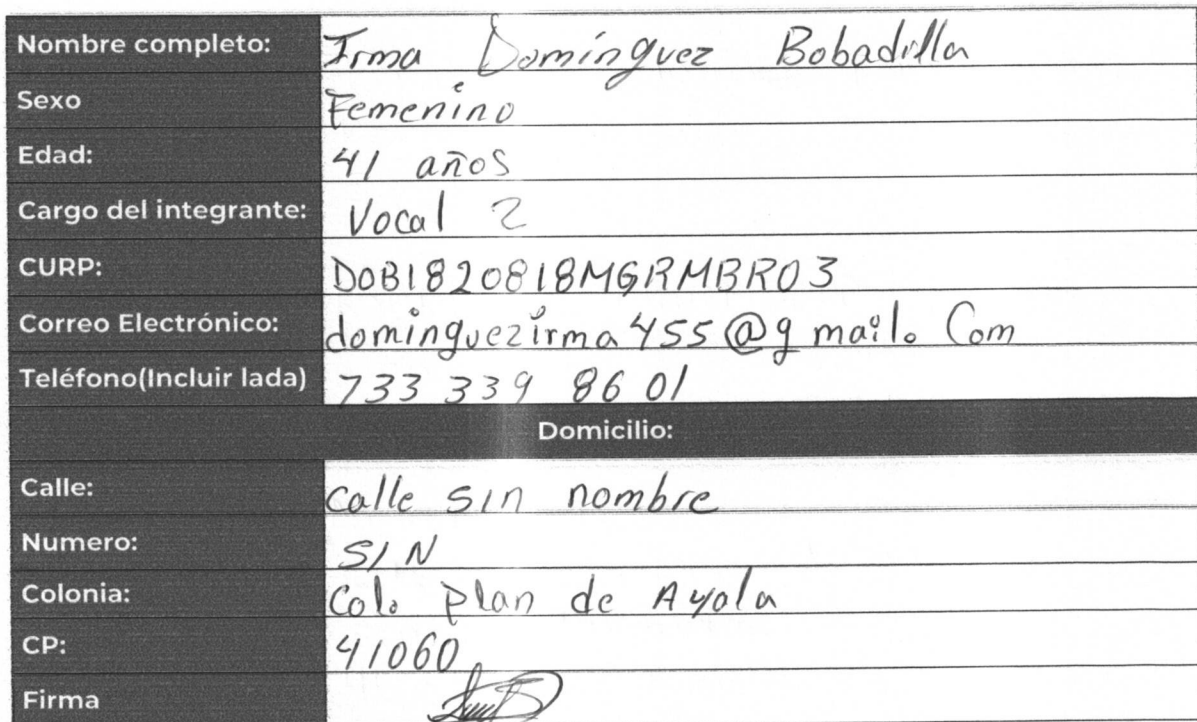 Nombre completo: Irma Domínguez Bobadilla
Sexo Femenino
Edad: 41 años
Cargo del integrante: Vocal 2
CURP: DOBI820818MGRMBR03
Correo Electrónico: dominguezirma455@gmail.com
Teléfono(Incluir lada) 733 339 86 01
Domicilio:
Calle: calle sin nombre
Numero: S/N
Colonia: Col. Plan de Ayala
CP: 41060
Firma